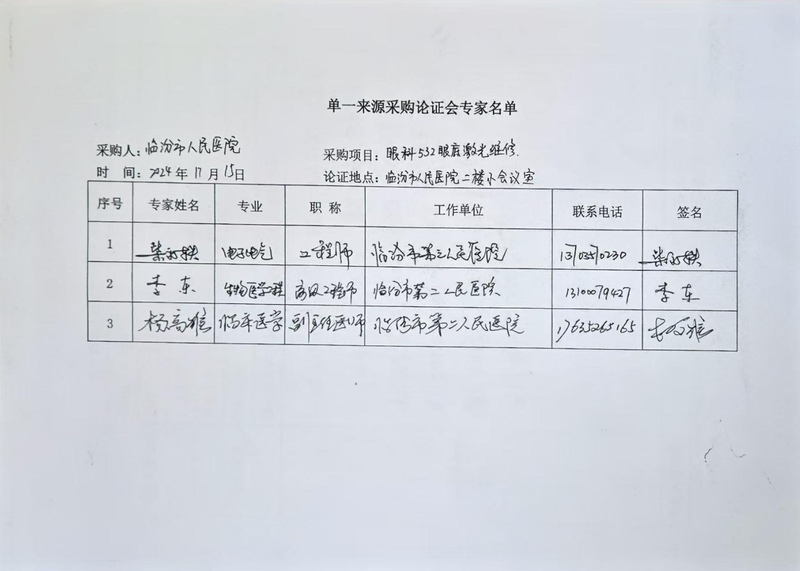 单一来源采购论证会专家名单
采购人：临汾市人民医院 采购项目：眼科532眼底激光维修
时 间：2024年11月15日 论证地点：临汾市人民医院二楼小会议室
序号 专家姓名 专业 职 称 工作单位 联系电话 签名
1 电子电气 工程师 临汾市第二人民医院
2 李东 生物医学工程 高级工程师 临汾市第二人民医院 13100079427 李东
3 杨高雄 临床医学 副主任医师 临汾市第二人民医院 17635265165